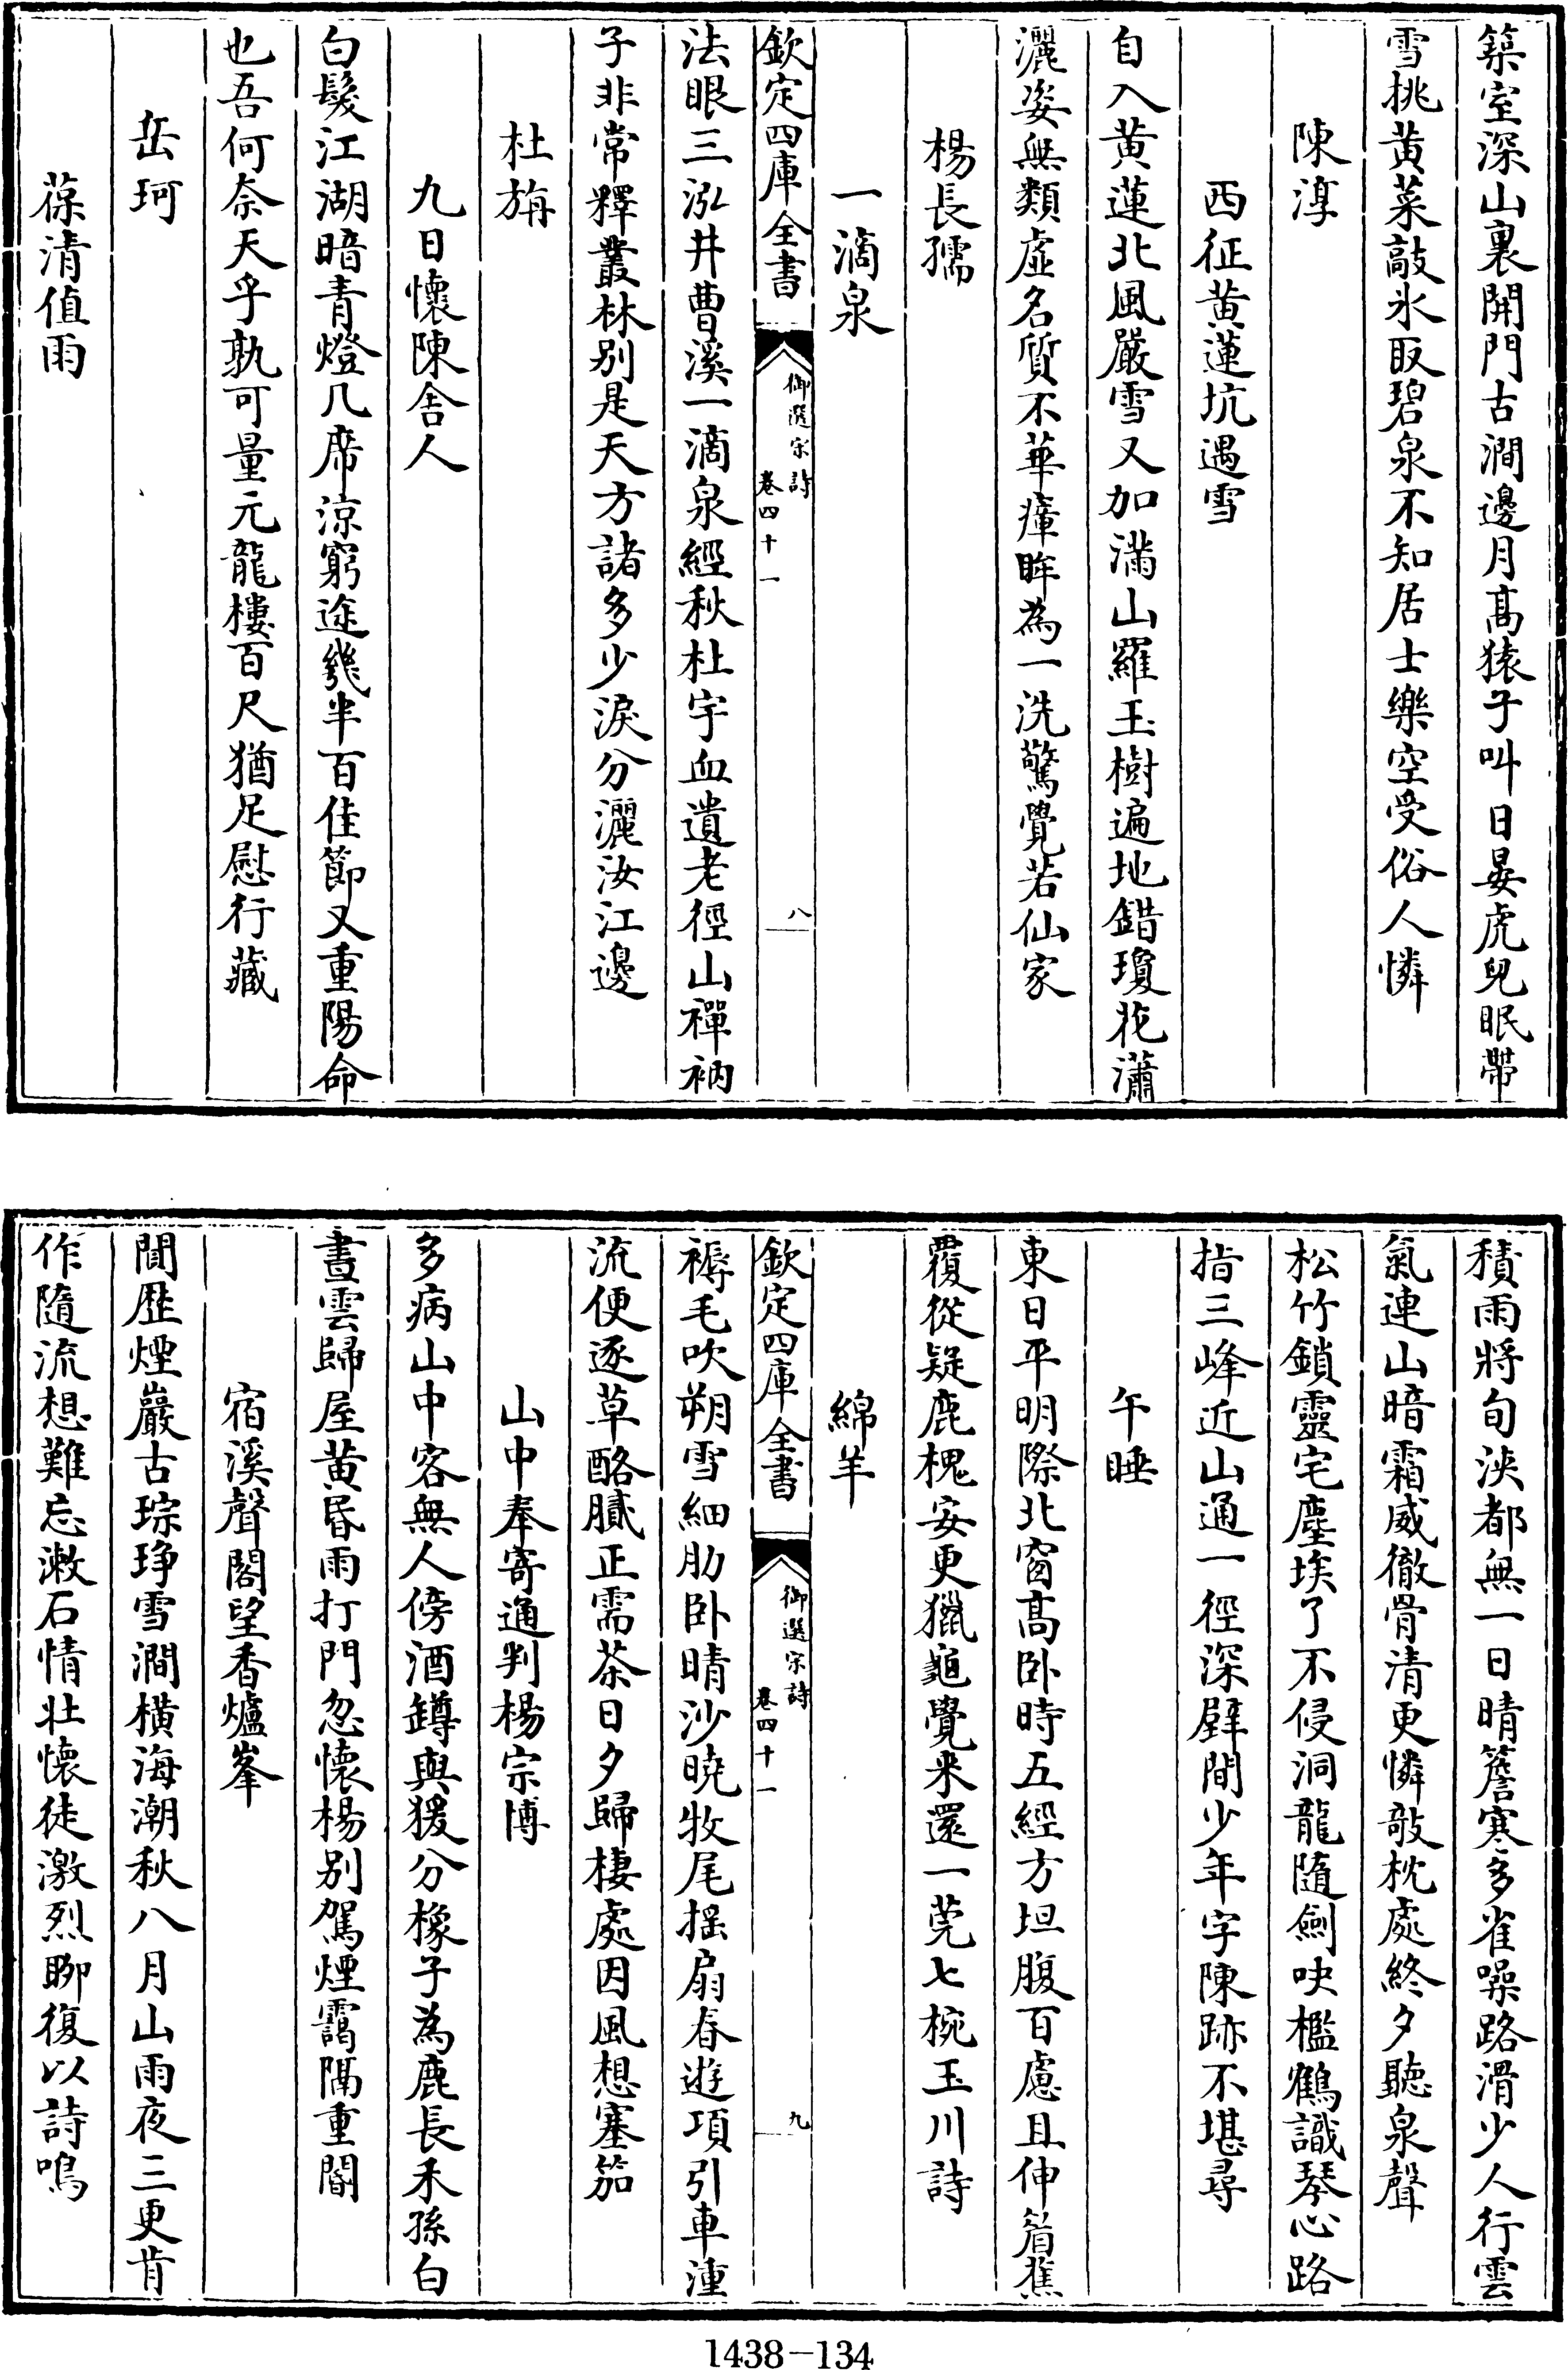 築室深山裏開門古澗邊月髙猿子叫日晏虎兒眠帶
雪挑黄菜敲氷取碧泉不知居士樂空受俗人憐
陳淳
西征黄蓮坑遇雪
自入黄蓮北風嚴雪又加滿山羅玉樹遍地錯瓊花瀟
灑姿無類虚名質不華瘴眸為一洗驚覺若仙家
楊長孺
一滴泉
欽定四庫全書
御選宋詩
卷四十一
八
法眼三泓井曹溪一滴泉經秋杜宇血遺老徑山禪衲
子非常釋叢林别是天方諸多少淚分灑汝江邊
杜旃
九日懷陳舎人
白髮江湖暗青燈几席涼窮途幾半百佳節又重陽命
也吾何奈天乎孰可量元龍樓百尺猶足慰行藏
岳珂
葆清值雨
積雨將旬浹都無一日晴簷寒多雀噪路滑少人行雲
氣連山暗霜威徹骨清更憐敧枕處終夕聽泉聲
松竹鎖靈宅塵埃了不侵洞龍隨劍吷檻鶴識琴心路
指三峰近山通一徑深壁間少年字陳跡不堪尋
午睡
東日平明際北窗髙卧時五經方坦腹百慮且伸眉蕉
覆從疑鹿槐安更獵龜覺来還一莞七椀玉川詩
綿羊
欽定四庫全書
御選宋詩
卷四十一
九
褥毛吹朔雪細肋卧晴沙曉牧尾揺扇春遊項引車湩
流便逐草酪膩正需茶日夕歸棲處因風想塞笳
山中奉寄通判楊宗博
多病山中客無人傍酒罇與猨分橡子為鹿長禾孫白
晝雲歸屋黄昏雨打門忽懷楊别駕煙靄隔重閽
宿溪聲閣望香爐峯
閒歴煙巖古琮琤雪澗橫海潮秋八月山雨夜三更肯
作隨流想難忘漱石情壮懷徒激烈聊復以詩鳴
1438-134